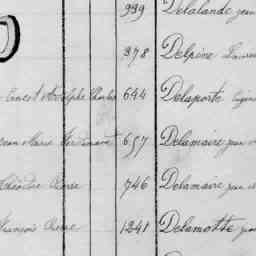 999 Delalande Jean
378 Delpine
Ernest Adolphe Charles 644 Delaporte Eugène
Jean Marie Ferdinand 657 Delamaire Jean
Théodore Pierre 746 Delamaire Jean
François Pierre 1241 Delamotte